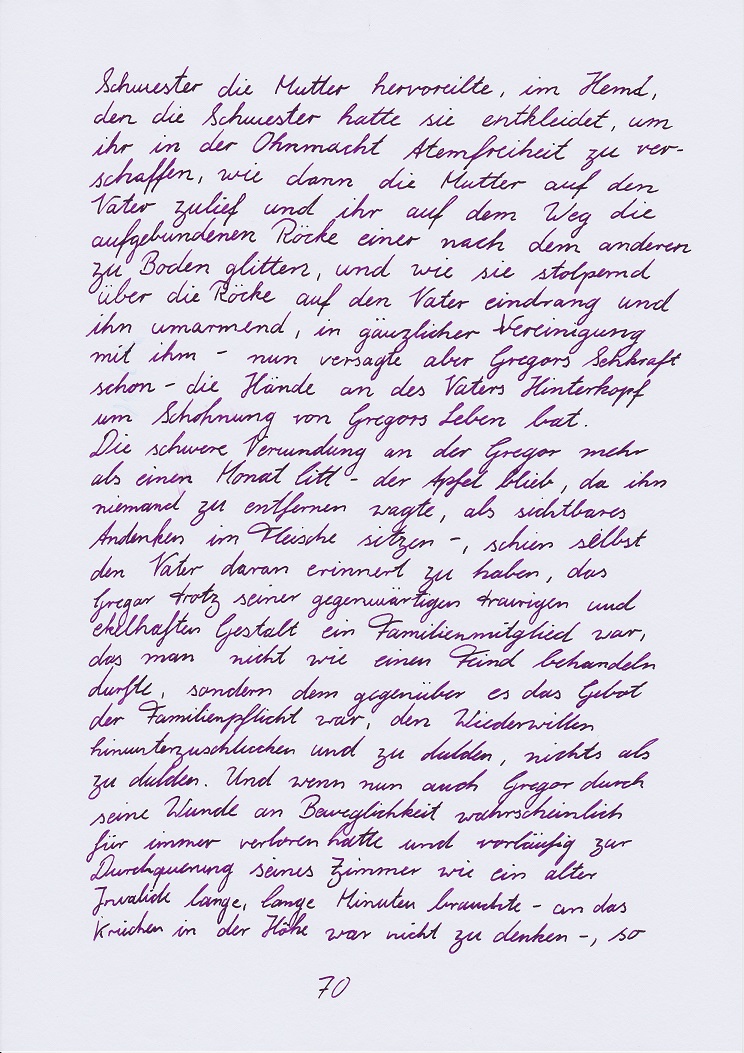 Schwester die Mutter hervoreilte, im Hemd,
den die Schwester hatte sie entkleidet, um
ihr in der Ohnmacht Atemfreiheit zu ver-
schaffen, wie dann die Mutter auf den
Vater zulief und ihr auf dem Weg die
aufgebundenen Röcke einer nach dem anderen
zu Boden glitten, und wie sie stolpernd
über die Röcke auf den Vater eindrang und
ihn umarmend, in gänzlicher Vereinigung
mit ihm - nun versagte aber Gregors Sehkraft
schon - die Hände an des Vaters Hinterkopf
um Schohnung von Gregors Leben bat.
Die schwere Verwundung an der Gregor mehr
als einen Monat litt - der Apfel blieb, da ihn
niemand zu entfernen wagte, als sichtbares
Andenken im Fleische sitzen -, schien selbst
den Vater daran erinnert zu haben, das
Gregor trotz seiner gegenwärtigen traurigen und
ekelhaften Gestalt ein Familienmitglied war,
das man nicht wie einen Feind behandeln
durfte, sondern dem gegenüber es das Gebot
der Familienpflicht war, den Wiederwillen
hinunterzuschlucken und zu dulden, nichts als
zu dulden. Und wenn nun auch Gregor durch
seine Wunde an Beweglichkeit wahrscheinlich
für immer verloren hatte und vorläufig zur
Durchquerung seines Zimmer wie ein alter
Invalide lange, lange Minuten brauchte - an das
Kriechen in der Höhe war nicht zu denken -, so
70